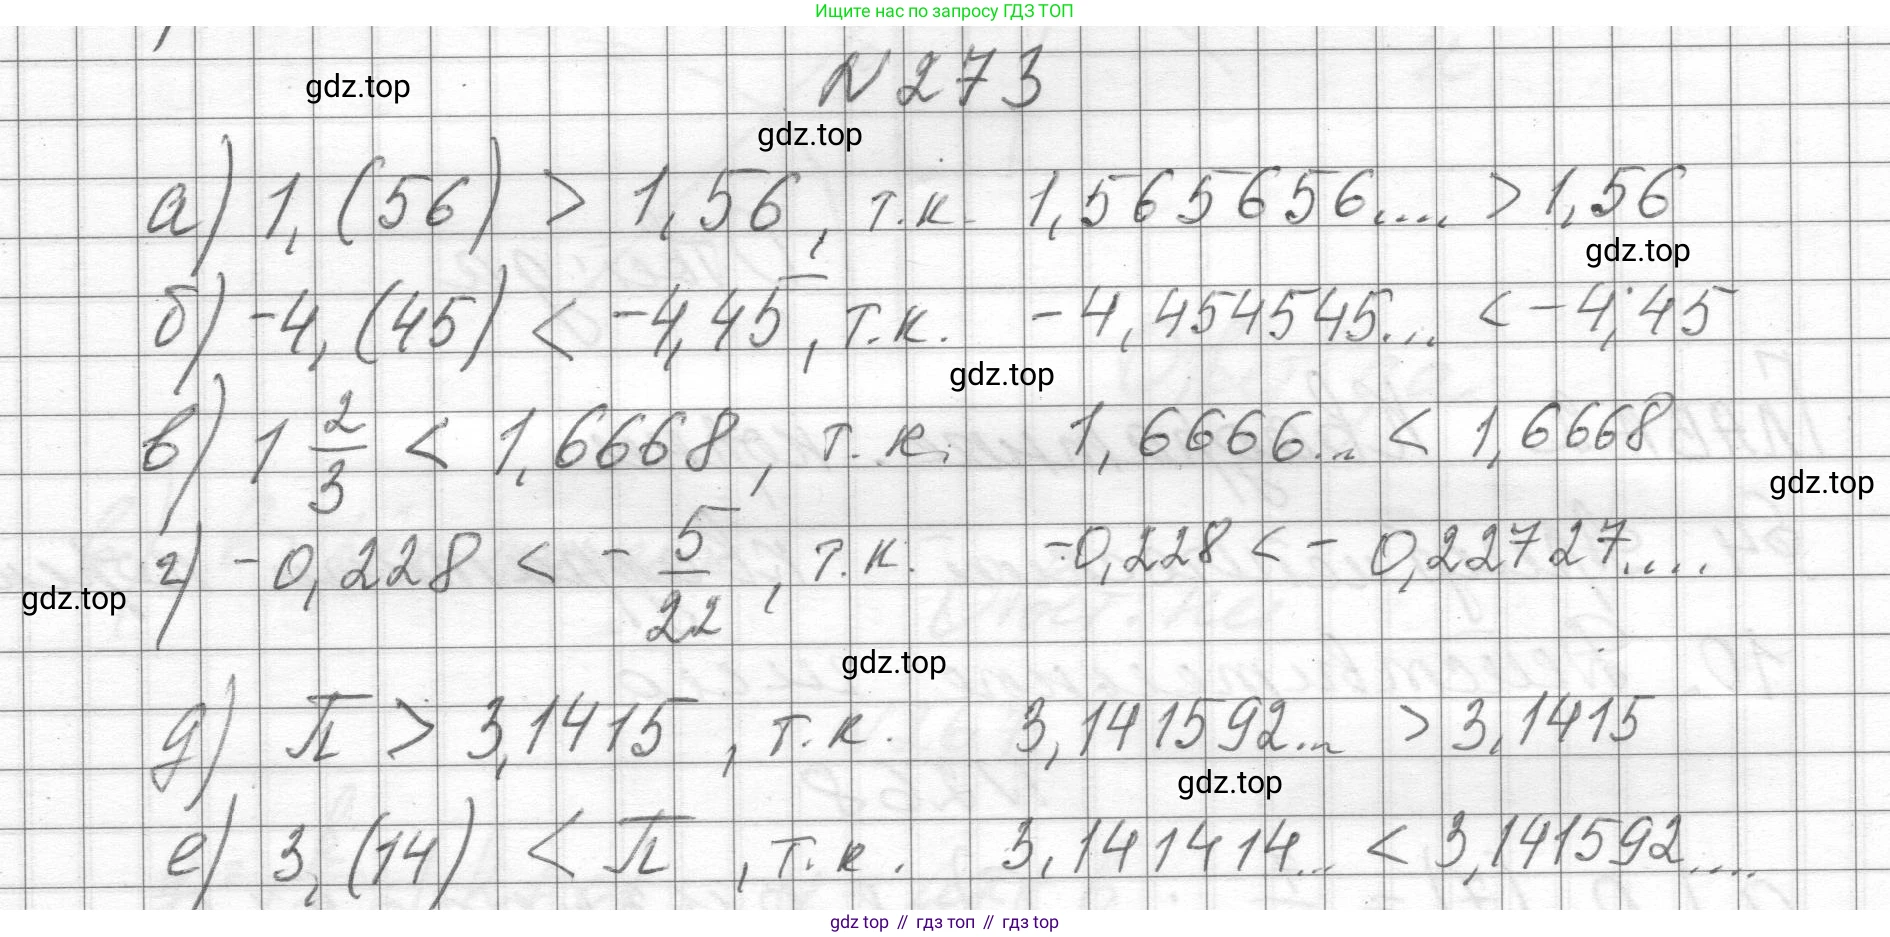 Ищите нас по запросу ГДЗ ТОП
N 273
gdz.top
gdz.top
а) 1,(56) > 1,56, т.к. 1,565656.... > 1,56
gdz.top
б) -4,(45) < -4,45, т.к. -4,454545... < -4,45
gdz.top
в) 1 2/3 < 1,6668, т.к. 1,6666... < 1,6668
gdz.top
г) -0,228 < - 5/22, т.к. -0,228 < - 0,22727....
gdz.top
gdz.top
д) π > 3,1415, т.к. 3,141592... > 3,1415
gdz.top
е) 3,(14) < π, т.к. 3,141414... < 3,141592....
gdz top // гдз топ // гдз top